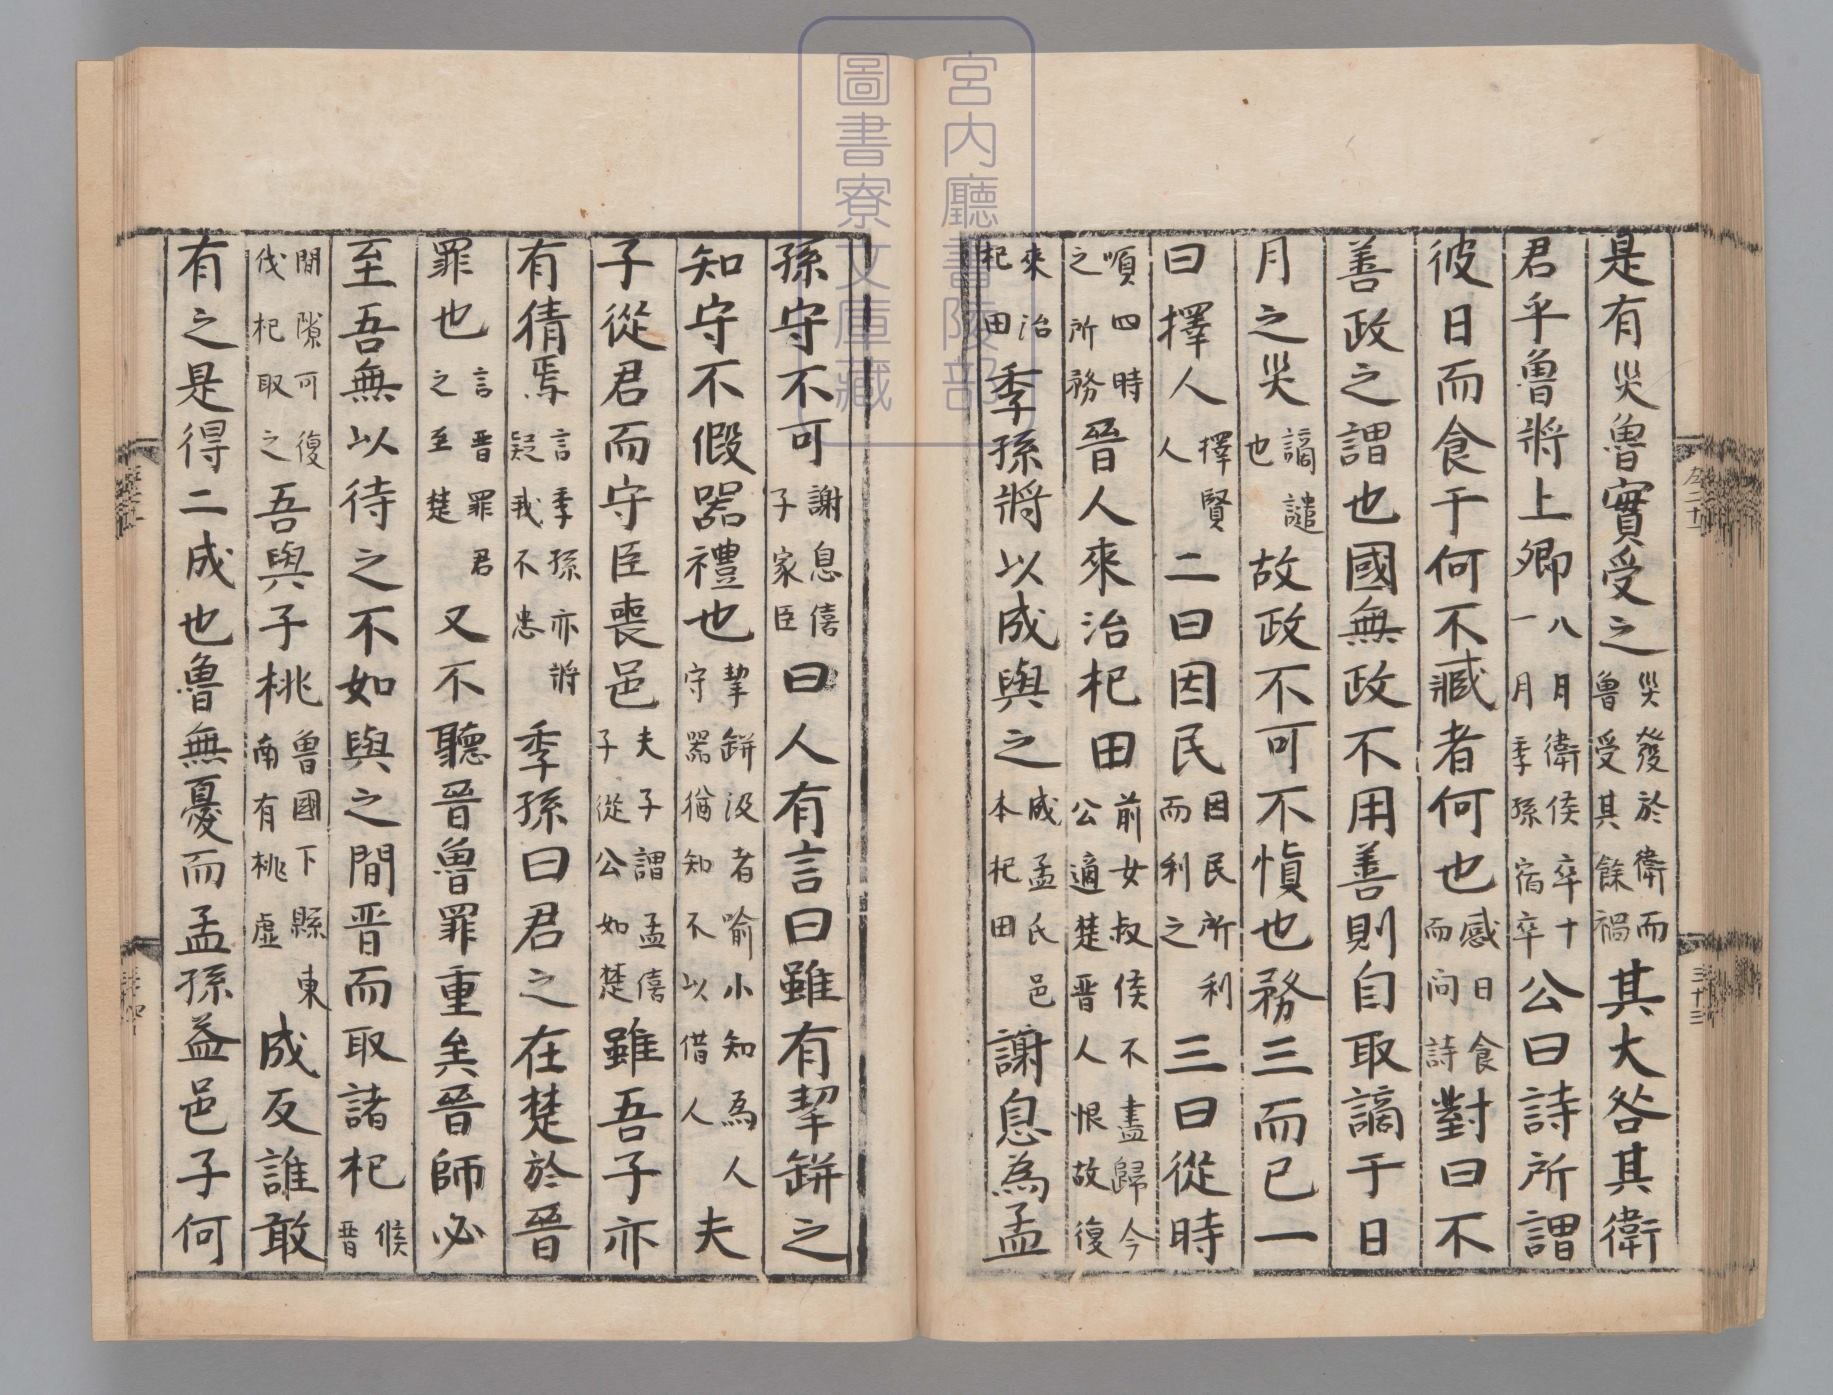 宮内廳書陵部
圖書寮文庫藏
是有災魯實受之災發於衛而魯受其餘禍其大咎其衛
君乎魯將上卿八月衛侯卒十一月季孫宿卒公曰詩所謂
彼日而食于何不臧者何也感日食而問詩對曰不
善政之謂也國無政不用善則自取謫于日
月之災謫譴也故政不可不慎也務三而已一
曰擇人擇賢人二曰因民因民所利而利之三曰從時
順四時之所務晉人來治杞田前女叔侯不盡歸今公適楚晉人恨故復
來治杞田季孫將以成與之成孟氏邑本杞田謝息為孟
孫守不可謝息僖子家臣曰人有言曰雖有挈缾之
知守不假器禮也挈缾汲者喻小知為人守器猶知不以借人夫
子從君而守臣喪邑夫子謂孟僖子從公如楚雖吾子亦
有猜焉言季孫亦將疑我不忠季孫曰君之在楚於晉
罪也言晉罪君之至楚又不聽晉魯罪重矣晉師必
至吾無以待之不如與之間晉而取諸杞候晉
間隙可復伐杞取之吾與子桃魯國下縣東南有桃虛成反誰敢
有之是得二成也魯無憂而孟孫益邑子何